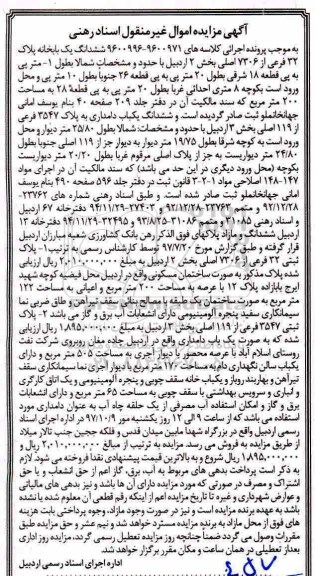 آگهی مزایده اموال غیر منقول اسناد رهنی
به موجب پرونده اجرائی کلاسه های ۹۶۰۰۹۷۱-۹۶۰۰۹۹۶ ششدانگ یک بابخانه پلاک
۳۲ فرعی از ۷۳۰۶ اصلی بخش ۲ اردبیل با حدود و مشخصات شمالا بطول ۱۰ متر پی
به پی قطعه ۱۸ شرقا بطول ۲۰ متر پی به پی قطعه ۲۶ جنوبا بطول ۱۰ متر پی و محل
ورود است بکوچه ۸ متری احداثی غربا بطول ۲۰ متر پی به پی قطعه ۲۸ به مساحت
۲۰۰ متر مربع که سند مالکیت آن در دفتر جلد ۲۰۹ صفحه ۴۰ بنام یوسف امانی
جهانخانملو ثبت صادر گردیده است. و ششدانگ یکباب دامداری به پلاک ۳۵۴۷ فرعی
از ۱۱۹ اصلی بخش ۳ اردبیل با حدود و مشخصات: شمالا بطول ۲۵/۸۰ متر دیوار و محل
ورود است به کوچه شرقا بطول ۱۹/۷۵ متر دیوار به دیوار جز از ۱۱۹ اصلی جنوبا بطول
۲۴/۸۰ متر دیواریست به جز از پلاک اصلی مرقوم غربا بطول ۲۰/۲۰ متر دیواریست
بکوچه (محل ورود دیگری در این حد می باشد) که سند مالکیت آن در اجرای مواد
۱۴۷-۱۴۸ اصلاحی مواد ۱-۲-۳ قانون ثبت در دفتر جلد ۵۹۶ صفحه ۴۹۰ بنام یوسف
امانی جهانخانملو ثبت صادر شده است. و طبق اسناد رهنی شماره های ۲۳۷۶۲-
۹۲/۱۲/۲۸ و متمم ۲۳۷۶۳-۹۲/۱۲/۲۸ و ۲۷۴۰۲-۹۴/۱۱/۲۹ دفترخانه ۶۷ اردبیل
و اسناد رهنی ۳۱۰۸۵ و متمم ۳۱۰۸۶-۹۳/۸/۲۵ و ۳۲۴۹۵-۹۴/۱۱/۲۹ دفترخانه ۱۳
اردبیل ششدانگ و مازاد پلاکهای فوق الذکر رهن بانک کشاورزی شعبه سبارزان اردبیل
قرار گرفته و طبق گزارش مورخ ۹۷/۷/۲۰ توسط کارشناس رسمی به ترتیب ۱- پلاک
ثبتی ۳۲ فرعی از ۷۳۰۶ اصلی بخش ۲ اردبیل به مبلغ ۲،۰۱۰،۰۰۰،۰۰۰ ریال ارزیابی
شده پلاک مذکور به صورت ساختمان مسکونی واقع در اردبیل محل فیضیه کوچه شهید
ایرج بابازاده پلاک ۱۲ با عرصه به مساحت ۲۰۰ متر مربع و اعیانی به مساحت ۱۲۲
متر مربع به صورت ساختمان یک طبقه با مصالح بنائی سقف تیرآهن و طاق ضربی نما
سیمانکاری سفید پنجره آلومینیومی دارای انشعابات آب برق و گاز می باشد ۲- پلاک
ثبتی ۳۵۴۷ فرعی از ۱۱۹ اصلی بخش ۳ اردبیل به مبلغ ۱،۸۹۵،۰۰۰،۰۰۰ ریال ارزیابی
شده که به صورت یک باب دامداری واقع در اردبیل جاده مغان روبروی شرکت نفت
روستای اسلام آباد با عرصه محصور با دیوار آجری به مساحت ۵۰۵ متر مربع و دارای
یکباب سالن نگهداری دام به مساحت ۱۷۰ متر مربع با دیوار آجری نما سیمانکاری سقف
تیرآهن و بهاربند روباز و یکباب خانه سقف چوبی و پنجره آلومینیومی و یک اتاق کارگری
و انباری و سرویس بهداشتی با سقف چوبی به مساحت ۶۵ متر مربع و دارای انشعابات
برق و گاز و امکان استفاده آب مصرفی از یک حلقه چاه آب به عنوان دامداری مورد
استفاده می باشد که از ساعت ۹ الی ۱۲ روز یکشنبه مورخ ۹۷/۱۰/۹ در اداره اجرای اسناد
رسمی اردبیل واقع در بزرگراه شهدا مابین میدان قدس و فلکه ججین جنب تالار میلاد
از طریق مزایده به فروش می رسد. مزایده به ترتیب از مبالغ ۲،۰۱۰،۰۰۰،۰۰۰ ریال و
۱،۸۹۵،۰۰۰،۰۰۰ ریال شروع و به بالاترین قیمت پیشنهادی نقدا فروخته می شود. لازم
به ذکر است پرداخت بدهی های مربوط به آب، برق، گاز اعم از حق انشعاب و یا حق
اشتراک و مصرف در صورتی که مورد مزایده دارای آن ها باشد و نیز بدهی های مالیاتی
و عوارض شهرداری و غیره تا تاریخ مزایده اعم از اینکه رقم قطعی آن معلوم شده یا نشده
باشد به عهده برنده مزایده است و نیز در صورت وجود مازاد، وجوه پرداختی بابت هزینه
های فوق از محل مازاد به برنده مزایده مسترد خواهد شد و نیم عشر و حق مزایده طبق
مقررات وصول می گردد ضمناً چنانچه روز مزایده تعطیل رسمی گردد، مزایده روز اداری
بعد از تعطیلی در همان ساعت و مکان مقرر برگزار خواهد شد.
اداره اجرای اسناد رسمی اردبیل